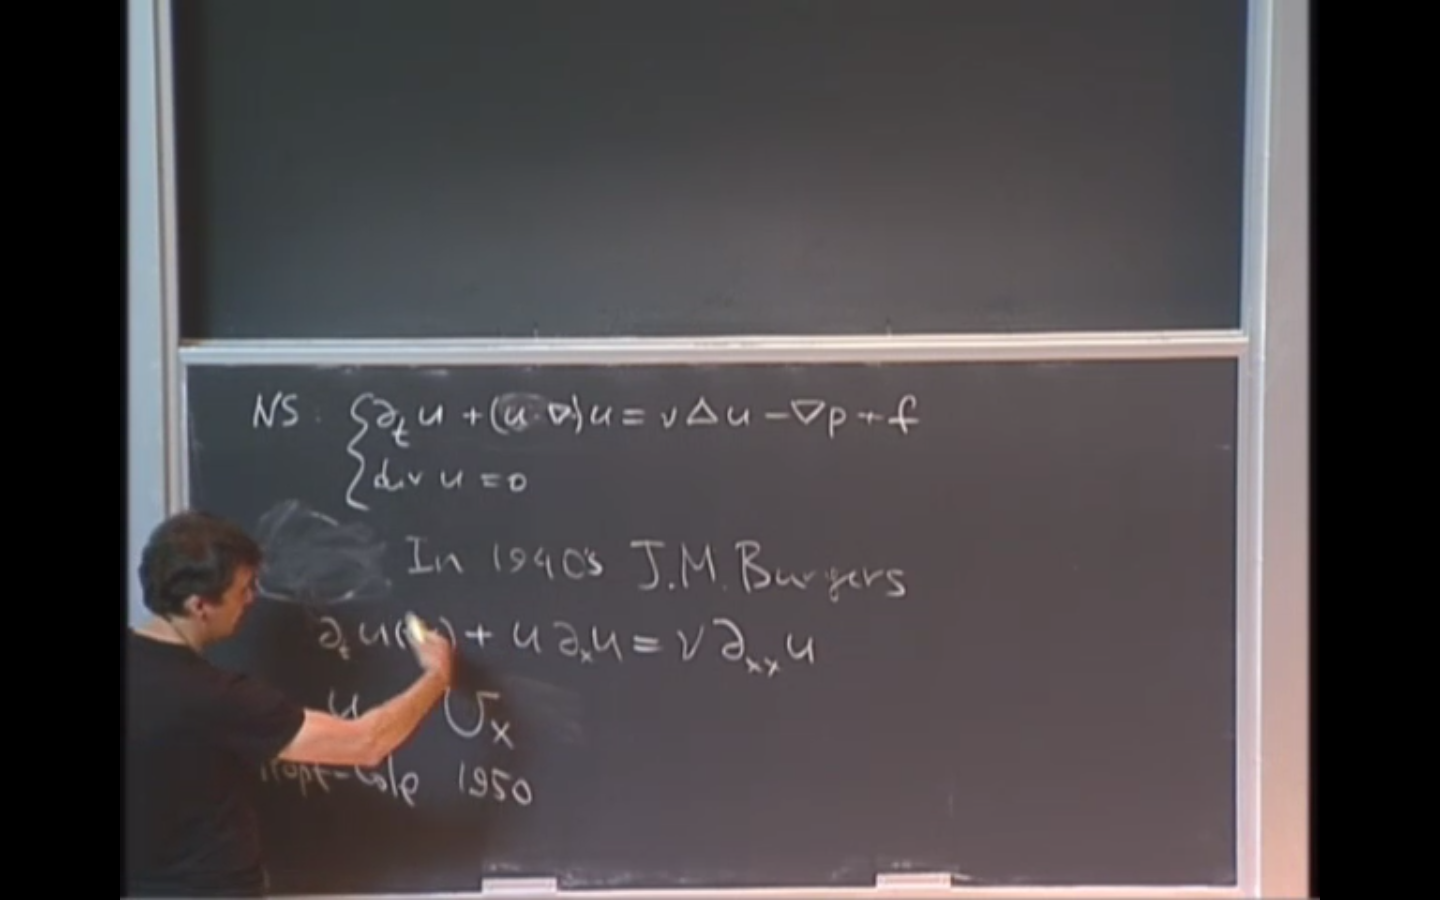 NS. { ∂_t u + (u·∇)u = ν Δ u − ∇p + f
div u = 0
In 1940's J.M. Burgers
∂_t u( ) + u ∂_x u = ν ∂_xx u
u U_x
Hopf-Cole 1950